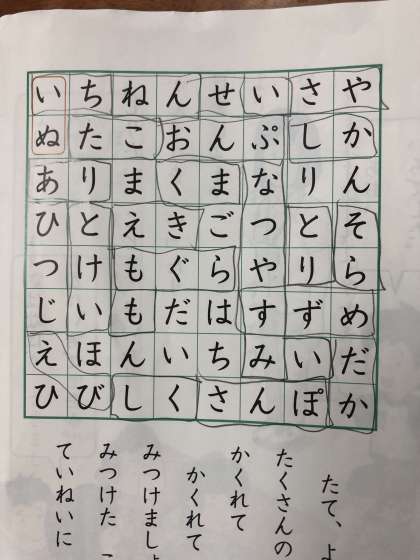 いちねんせいさや
ぬたこおんぷしか
ありまくまなりん
ひとえきごつとそ
つけもぐらやりら
じいもだはすずめ
えほんいちみいだ
ひびしくさんぽか
たて、よ
たくさんの
かくれて
かくれて
みつけましょ
みつけた こ
ていねいに